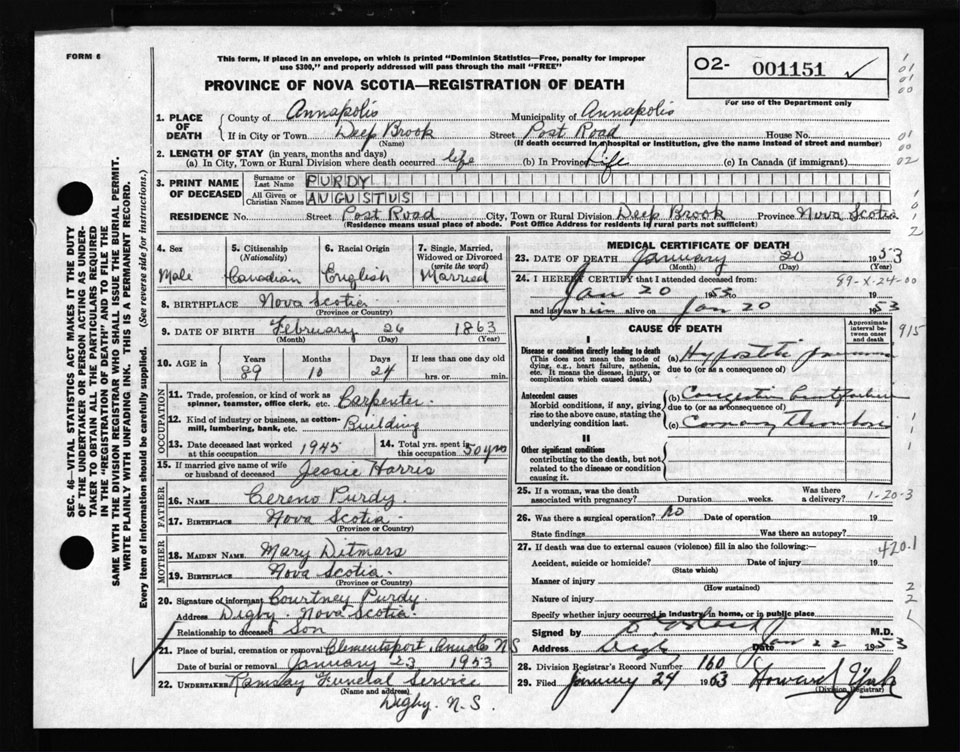 FORM 6
This form, if placed in an envelope, on which is printed "Dominion Statistics—Free, penalty for improper
use $300," and properly addressed will pass through the mail "FREE"
PROVINCE OF NOVA SCOTIA—REGISTRATION OF DEATH
O2- 001151 ✓
For use of the Department only
1. PLACE OF DEATH
County of Annapolis Municipality of Annapolis
If in City or Town Deep Brook Street Post Road House No.
(Name) (If death occurred in a hospital or institution, give the name instead of street and number)
2. LENGTH OF STAY (in years, months and days)
(a) In City, Town or Rural Division where death occurred life (b) In Province Life (c) In Canada (if immigrant)
3. PRINT NAME OF DECEASED
Surname or Last Name PURDY
All Given or Christian Names AUGUSTUS
RESIDENCE No. Street Post Road City, Town or Rural Division Deep Brook Province Nova Scotia
(Residence means usual place of abode. Post Office Address for residents in rural parts not sufficient)
4. Sex
Male
5. Citizenship
(Nationality)
Canadian
6. Racial Origin
English
7. Single, Married, Widowed or Divorced
(write the word)
Married
8. BIRTHPLACE Nova Scotia
(Province or Country)
9. DATE OF BIRTH February 26 1863
(Month) (Day) (Year)
10. AGE in Years Months Days If less than one day old
89 10 24 hrs. or min.
OCCUPATION
11. Trade, profession, or kind of work as
spinner, teamster, office clerk, etc. Carpenter
12. Kind of industry or business, as cotton-
mill, lumbering, bank, etc. Building
13. Date deceased last worked
at this occupation 1945
14. Total yrs. spent in
this occupation 50 yrs
15. If married give name of wife
or husband of deceased Jessie Harris
FATHER
16. NAME Cereno Purdy
17. BIRTHPLACE Nova Scotia
(Province or Country)
MOTHER
18. MAIDEN NAME Mary Ditmars
19. BIRTHPLACE Nova Scotia
(Province or Country)
20. Signature of informant Courtney Purdy
Address Digby Nova Scotia
Relationship to deceased Son
21. Place of burial, cremation or removal Clementsport, N S
Date of burial or removal January 23 1953
22. UNDERTAKER Ramsay Funeral Service
(Name and address)
Digby. N. S.
MEDICAL CERTIFICATE OF DEATH
23. DATE OF DEATH January 20 1953
(Month) (Day) (Year)
24. I HEREBY CERTIFY that I attended deceased from:
Jan 20 19
and last saw h alive on Jan 20 1953
89-X-24-00
CAUSE OF DEATH
Approximate interval between onset and death
915
I
Disease or condition directly leading to death
(This does not mean the mode of
dying, e.g., heart failure, asthenia,
etc. It means the disease, injury, or
complication which caused death.)
(a)
due to (or as a consequence of)
Antecedent causes
Morbid conditions, if any, giving
rise to the above cause, stating the
underlying condition last.
(b)
due to (or as a consequence of)
(c) Coronary Thrombosis
II
Other significant conditions
contributing to the death, but not
related to the disease or condition
causing it.
25. If a woman, was the death
associated with pregnancy? Duration weeks. Was there
a delivery?
1-20-3
26. Was there a surgical operation? no Date of operation 19
State findings Was there an autopsy?
27. If death was due to external causes (violence) fill in also the following:—
420.1
Accident, suicide or homicide? Date of injury 19
(State which)
Manner of injury
(How sustained)
Nature of injury
Specify whether injury occurred in industry, in home, or in public place
Signed by M.D.
Address Digby Date Jan 22 1953
28. Division Registrar's Record Number 160
29. Filed January 24 1953 Howard
(Division Registrar)
SEC. 46—VITAL STATISTICS ACT MAKES IT THE DUTY
OF THE UNDERTAKER OR PERSON ACTING AS UNDER-
TAKER TO OBTAIN ALL THE PARTICULARS REQUIRED
IN THE "REGISTRATION OF DEATH" AND TO FILE THE
SAME WITH THE DIVISION REGISTRAR WHO SHALL ISSUE THE BURIAL PERMIT.
WRITE PLAINLY WITH UNFADING INK. THIS IS A PERMANENT RECORD.
Every item of information should be carefully supplied. (See reverse side for instructions.)